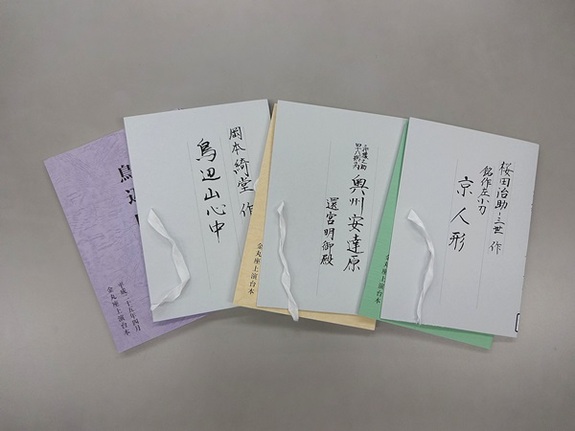 桜田治助三世 作
銘作左小刀
京人形
奥州安達原
還宮明御殿
金丸座上演台本
金丸座上演台本
岡本綺堂 作
鳥辺山心中
鳥辺
平成二十五年四月
金丸座上演台本